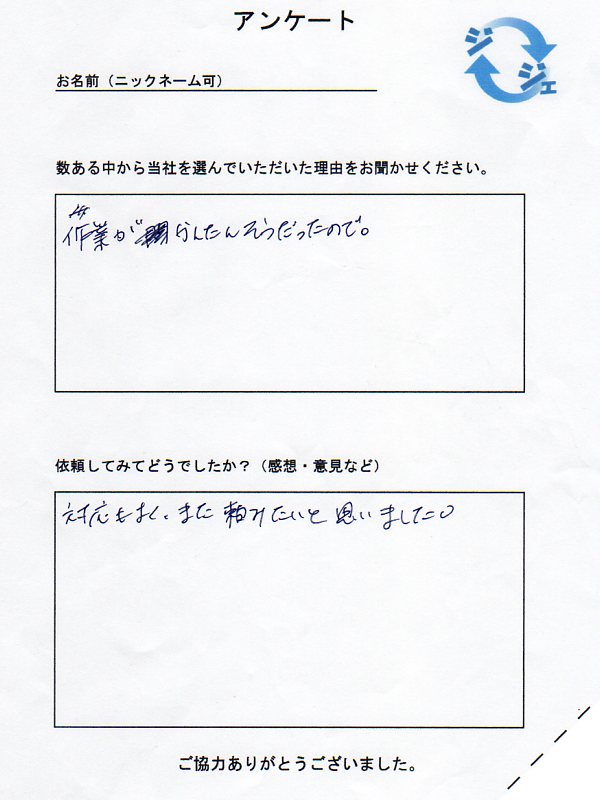 アンケート
ジジェ
お名前（ニックネーム可）
数ある中から当社を選んでいただいた理由をお聞かせください。
作業がかんたんそうだったので。
依頼してみてどうでしたか？（感想・意見など）
対応もよく、また頼みたいと思いました。
ご協力ありがとうございました。